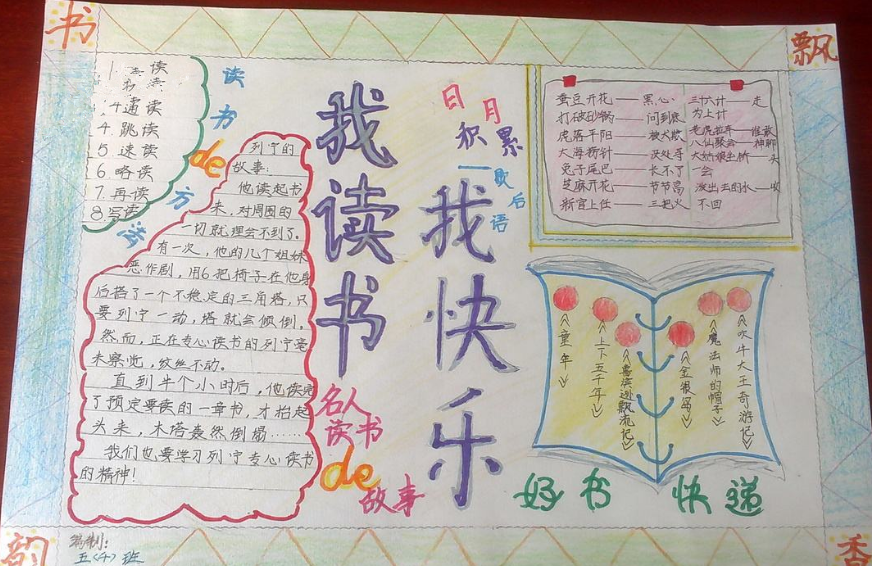 书
飘
韵
香
1. 读
4 通读
4 跳读
5 速读
6 略读
7. 再读
8. 写读
读书de方法
列宁的
故事:
他读起书
来，对周围的
一切就理会不到了。
有一次，他的几个姐妹
恶作剧，用6把椅子在他身
后搭了一个不稳定的三角塔，只
要列宁一动，塔就会倾倒。
然而，正在专心读书的列宁毫
未察觉，纹丝不动。
直到半个小时后，他读完
了预定要读的一章书，才抬起
头来，木塔轰然倒塌……
我们也要学习列宁专心读书
的精神!
名人
读书
de
故事
我读书
我快乐
日月
积累
——歇后语
蚕豆开花——黑心
打破砂锅——问到底
虎落平阳——被犬欺
大海捞针——没处寻
兔子尾巴——长不了
芝麻开花——节节高
新官上任——三把火
三十六计——走
为上计
八仙聚会——神聊
大姑娘坐轿——头
会
泼出去的水——收
不回
《童年》
《上下五千年》
《鲁滨逊飘流记》
《金银岛》
《魔法师的帽子》
《吹牛大王奇游记》
好书 快递
编制:
五〈4〉班